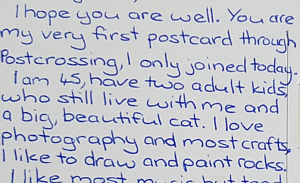 I hope you are well. You are
my very first postcard through
Postcrossing, I only joined today.
I am 45, have two adult kids,
who still live with me and
a big, beautiful cat. I love
photography and most crafts,
I like to draw and paint rocks.
I like most music but tend